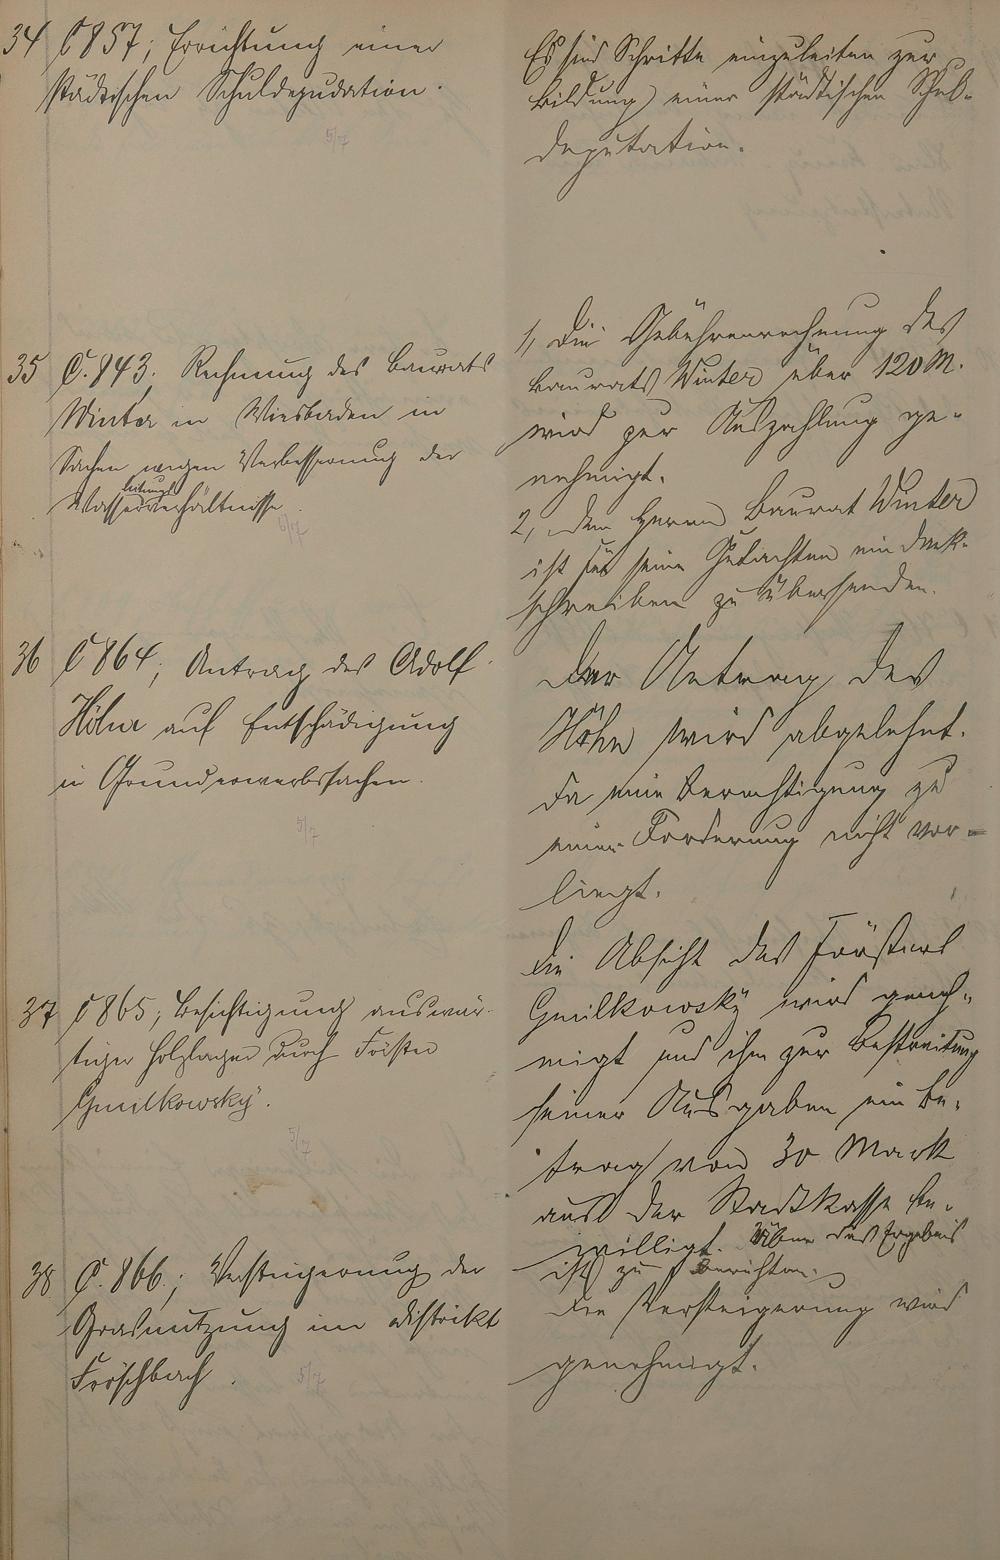 34 C 857; Errichtung einer
städtischen Schuldeputation.
5/7
Es sind Schritte einzuleiten zur
Bildung einer städtischen Schul-
deputation.
35 C. 843. Rechnung des Baurats
Winter in Wiesbaden in
Sachen wegen Verbesserung der
leitungs
Wasserverhältnisse.
5/7
1, Die Gebührenrechnung des
Baurats Winter über 120 M.
wird zur Auszahlung ge-
nehmigt.
2, dem Herrn Baurat Winter
ist für seine Gutachten ein Dank-
schreiben zu übersenden.
36 C 864; Antrag des Adolf
Höhn auf Entschädigung
in Grunderwerbssachen.
5/7
Der Antrag des
Höhn wird abgelehnt.
Da eine Berechtigung zu
einer Forderung nicht vor-
liegt.
37 C 865; Besichtigung auswär-
tiger Holzlager durch Förster
Gmilkowsky.
5/7
Die Absicht des Försters
Gmilkowsky wird geneh-
migt und ihm zur Bestreitung
seiner Ausgaben ein Be-
trag von 30 Mark
aus der Stadtkasse be-
willigt. Über das Ergebnis
ist zu berichten.
38 C. 866.; Versteigerung der
Grasnutzung im Distrikt
Fröschbach.
5/7
Die Versteigerung wird
genehmigt.